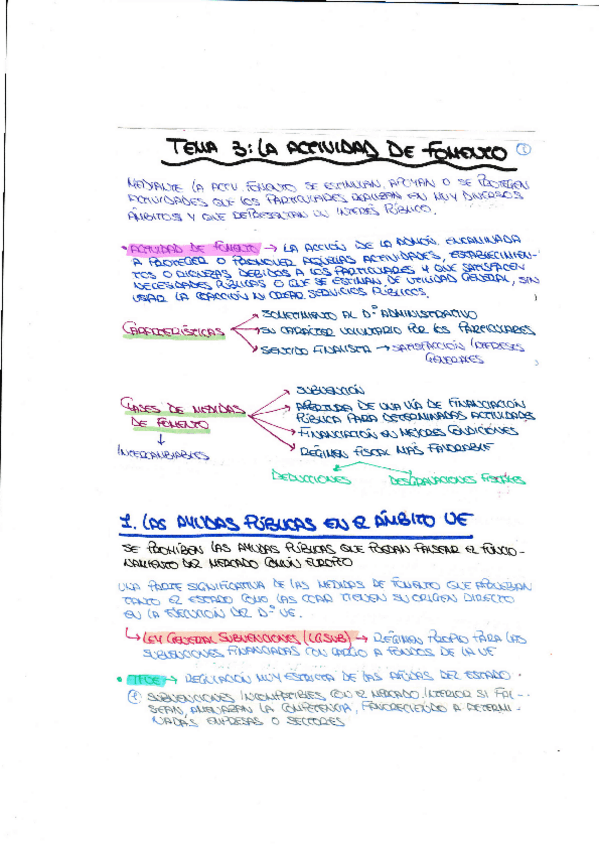 TEMA 3: LA ACTIVIDAD DE FOMENTO 1
MEDIANTE LA ACTV. FOMENTO SE ESTIMULAN, APOYAN O SE PROTEGEN
ACTIVIDADES QUE LOS PARTICULARES REALIZAN EN MUY DIVERSOS
ÁMBITOS Y QUE REPRESENTAN UN INTERÉS PÚBLICO.
• ACTIVIDAD DE FOMENTO → LA ACCIÓN DE LA ADMÓN. ENCAMINADA
A PROTEGER O PROMOVER AQUELLAS ACTIVIDADES, ESTABLECIMIEN-
TOS O RIQUEZAS DEBIDOS A LOS PARTICULARES Y QUE SATISFACEN
NECESIDADES PÚBLICAS O QUE SE ESTIMAN DE UTILIDAD GENERAL, SIN
USAR LA COACCIÓN NI CREAR SERVICIOS PÚBLICOS.
CARACTERÍSTICAS
SOMETIMIENTO AL Dº ADMINISTRATIVO
SU CARÁCTER VOLUNTARIO POR LOS PARTICULARES
SENTIDO FINALISTA → SATISFACCIÓN INTERESES
GENERALES
CLASES DE MEDIDAS
DE FOMENTO
↓
INTERCAMBIABLES
SUBVENCIÓN
APERTURA DE UNA VÍA DE FINANCIACIÓN
PÚBLICA PARA DETERMINADAS ACTIVIDADES
FINANCIACIÓN EN MEJORES CONDICIONES
RÉGIMEN FISCAL MÁS FAVORABLE
DEDUCCIONES DESGRAVACIONES FISCALES
1. LAS AYUDAS PÚBLICAS EN EL ÁMBITO UE
SE PROHÍBEN LAS AYUDAS PÚBLICAS QUE PUEDAN FALSEAR EL FUNCIO-
NAMIENTO DEL MERCADO COMÚN EUROPEO
UNA PARTE SIGNIFICATIVA DE LAS MEDIDAS DE FOMENTO QUE APRUEBAN
TANTO EL ESTADO COMO LAS CCAA TIENEN SU ORIGEN DIRECTO
EN LA EJECUCIÓN DEL Dº UE.
↳ LEY GENERAL SUBVENCIONES (LGSUB) → RÉGIMEN PROPIO PARA LAS
SUBVENCIONES FINANCIADAS CON CARGO A FONDOS DE LA UE
• TFUE → REGULACIÓN MUY ESTRICTA DE LAS AYUDAS DEL ESTADO.
1 SUBVENCIONES INCOMPATIBLES CON EL MERCADO INTERIOR SI FAL-
SEAN, AMENAZAN LA COMPETENCIA, FAVORECIENDO A DETERMI-
NADAS EMPRESAS O SECTORES